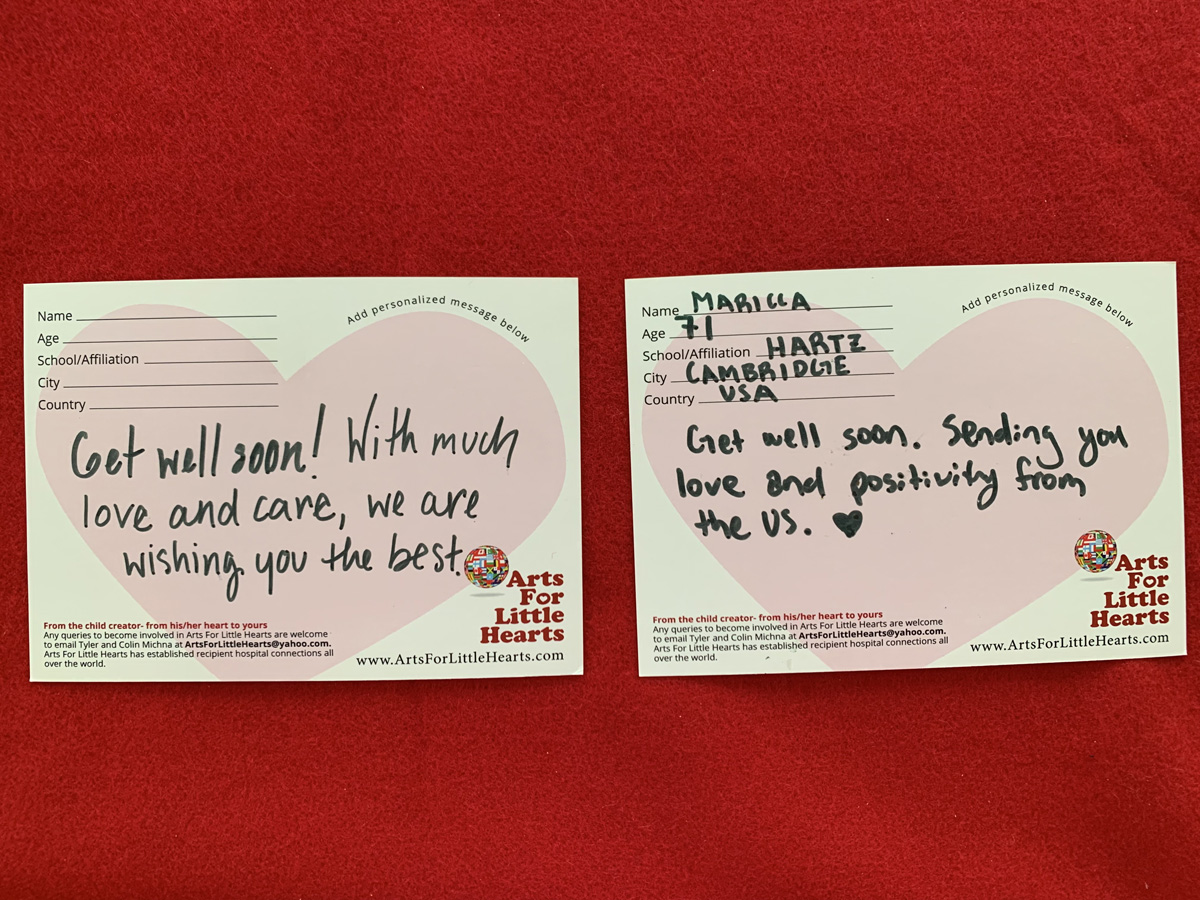 Name
Age
School/Affiliation
City
Country
Add personalized message below
Get well soon! With much
love and care, we are
wishing you the best.
Arts
For
Little
Hearts
From the child creator- from his/her heart to yours
Any queries to become involved in Arts For Little Hearts are welcome
to email Tyler and Colin Michna at ArtsForLittleHearts@yahoo.com.
Arts For Little Hearts has established recipient hospital connections all
over the world.
www.ArtsForLittleHearts.com
Name MARILLA
Age 71
School/Affiliation HARTZ
City CAMBRIDGE
Country USA
Add personalized message below
Get well soon. Sending you
love and positivity from
the US. ♥
Arts
For
Little
Hearts
From the child creator- from his/her heart to yours
Any queries to become involved in Arts For Little Hearts are welcome
to email Tyler and Colin Michna at ArtsForLittleHearts@yahoo.com.
Arts For Little Hearts has established recipient hospital connections all
over the world.
www.ArtsForLittleHearts.com